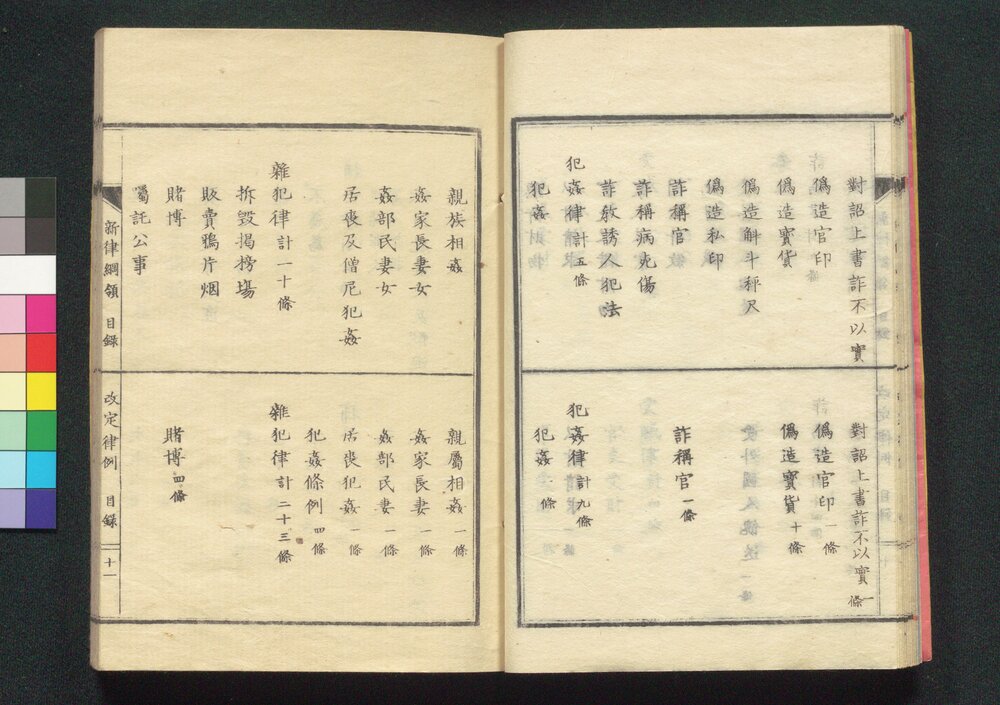 對詔上書詐不以實
僞造官印
僞造寳貨
僞造斛斗秤尺
僞造私印
詐稱官
詐稱病死傷
詐教誘人犯法
犯姦律計五條
犯姦
對詔上書詐不以實一條
僞造官印一條
僞造寳貨十條
詐稱官一條
犯姦律計九條
犯姦一條
親族相姦
姦家長妻女
姦部民妻女
居喪及僧尼犯姦
雜犯律計一十條
拆毀掲榜塲
販賣鴉片烟
賭博
囑託公事
親屬相姦一條
姦家長妻一條
姦部民妻一條
居喪犯姦一條
犯姦條例四條
雜犯律計二十三條
賭博四條
新律綱領 目録
改定律例 目録
十一